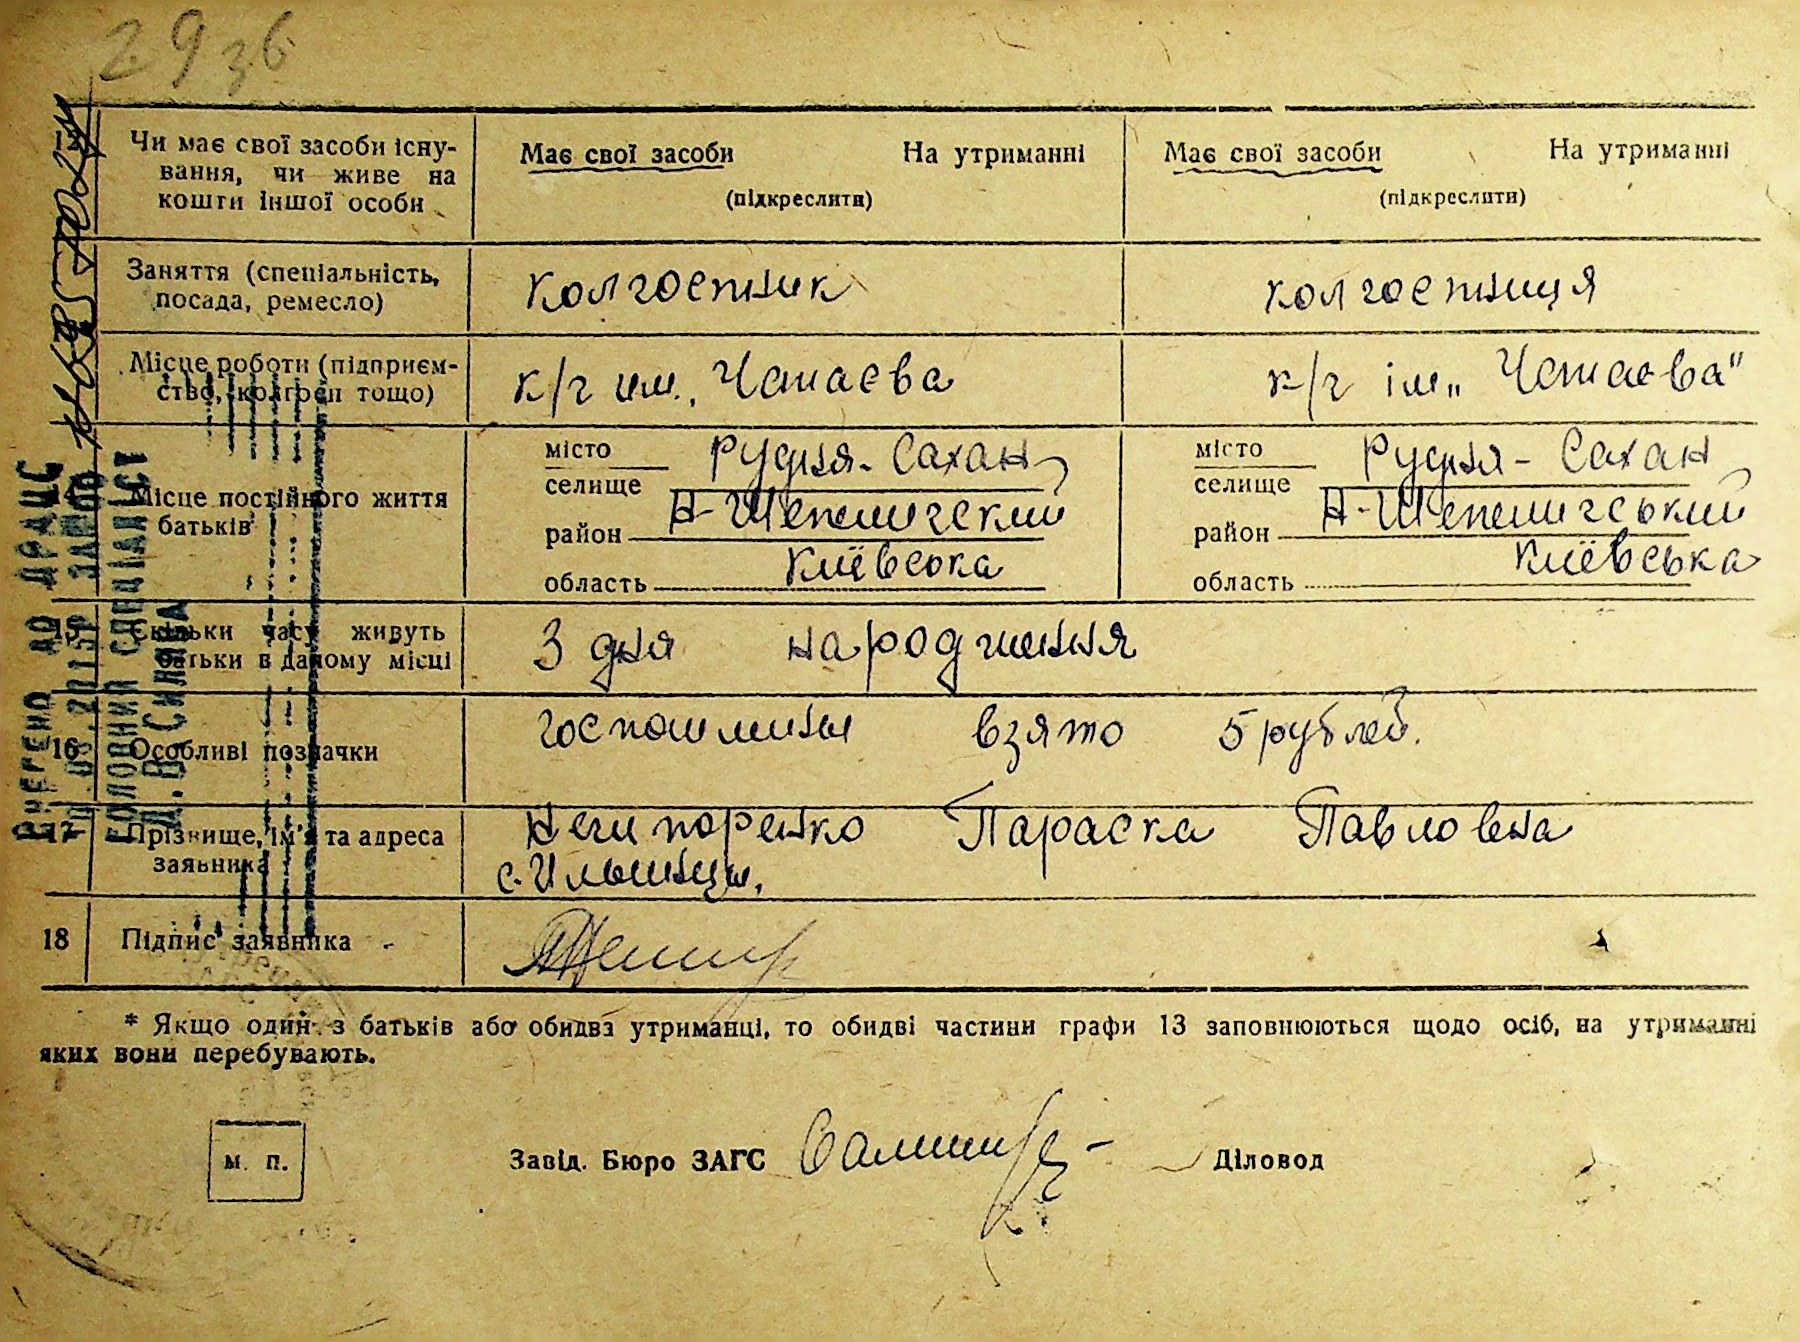 2936
12 Чи має свої засоби існу-
вання, чи живе на
кошти іншої особи
Має свої засоби На утриманні
(підкреслити)
Має свої засоби На утриманні
(підкреслити)
Заняття (спеціальність,
посада, ремесло)
колгоспник
колгоспниця
Місце роботи (підприєм-
ство, колгосп тощо)
к/г им. Чапаєва
к/г ім. „Чапаєва"
14 Місце постійного життя
батьків
місто
селище Рудня-Сахан
район Н-Шепелигский
область Київська
місто
селище Рудня-Сахан
район Н-Шепелигський
область Київська
15 Скільки часу живуть
батьки в даному місці
З дня народження
16 Особливі позначки
госпошлины взято 5 рублей.
17 Прізвище, ім'я та адреса
заявника
Негипоренко Параска Павловна
с. Ильинцы.
18 Підпис заявника
* Якщо один з батьків або обидва утриманці, то обидві частини графи 13 заповнюються щодо осіб, на утриманні
яких вони перебувають.
м. п.
Завід. Бюро ЗАГС
Діловод
Внегено до ДРАЦС
ГОЛОВНИЙ СПЕЦІАЛІСТ